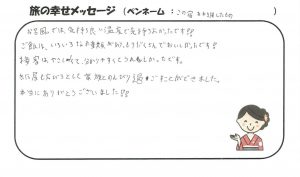 旅の幸せメッセージ (ペンネーム：この宿 )
お風呂では、気持ち良い温度で気持ちよかったです!!
ご飯は、いろいろな でおいしかったです!!
接客は、やさしくて、分かりやすくてうれしかったです。
お部屋も広々として家族とのんびり過ごすことができました。
本当にありがとうございました!!